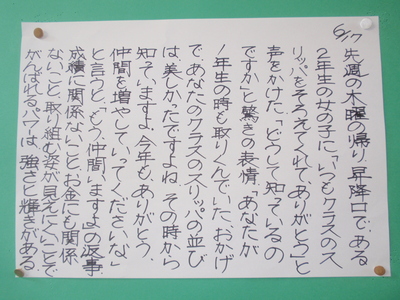 6/17 先週の木曜の帰り、昇降口で、ある
2年生の女の子に、「いつもクラスのス
リッパをそろえてくれて、ありがとう」と
声をかけた。「どうして知っているの
ですか」と驚きの表情。「あなたが
1年生の時も取りくんでいた、おかげ
で、あなたのクラスのスリッパの並び
は美しかったですよね。その時から
知ってますよ、今年も、ありがとう、
仲間を増やしていってくださいな」
と言うと、「もう、仲間、いますよ」の返事。
成績に関係ないこと、お金にも関係
ないこと、取り組む姿が見えにくいことで
がんばれるパワーは、強さと輝きがある。